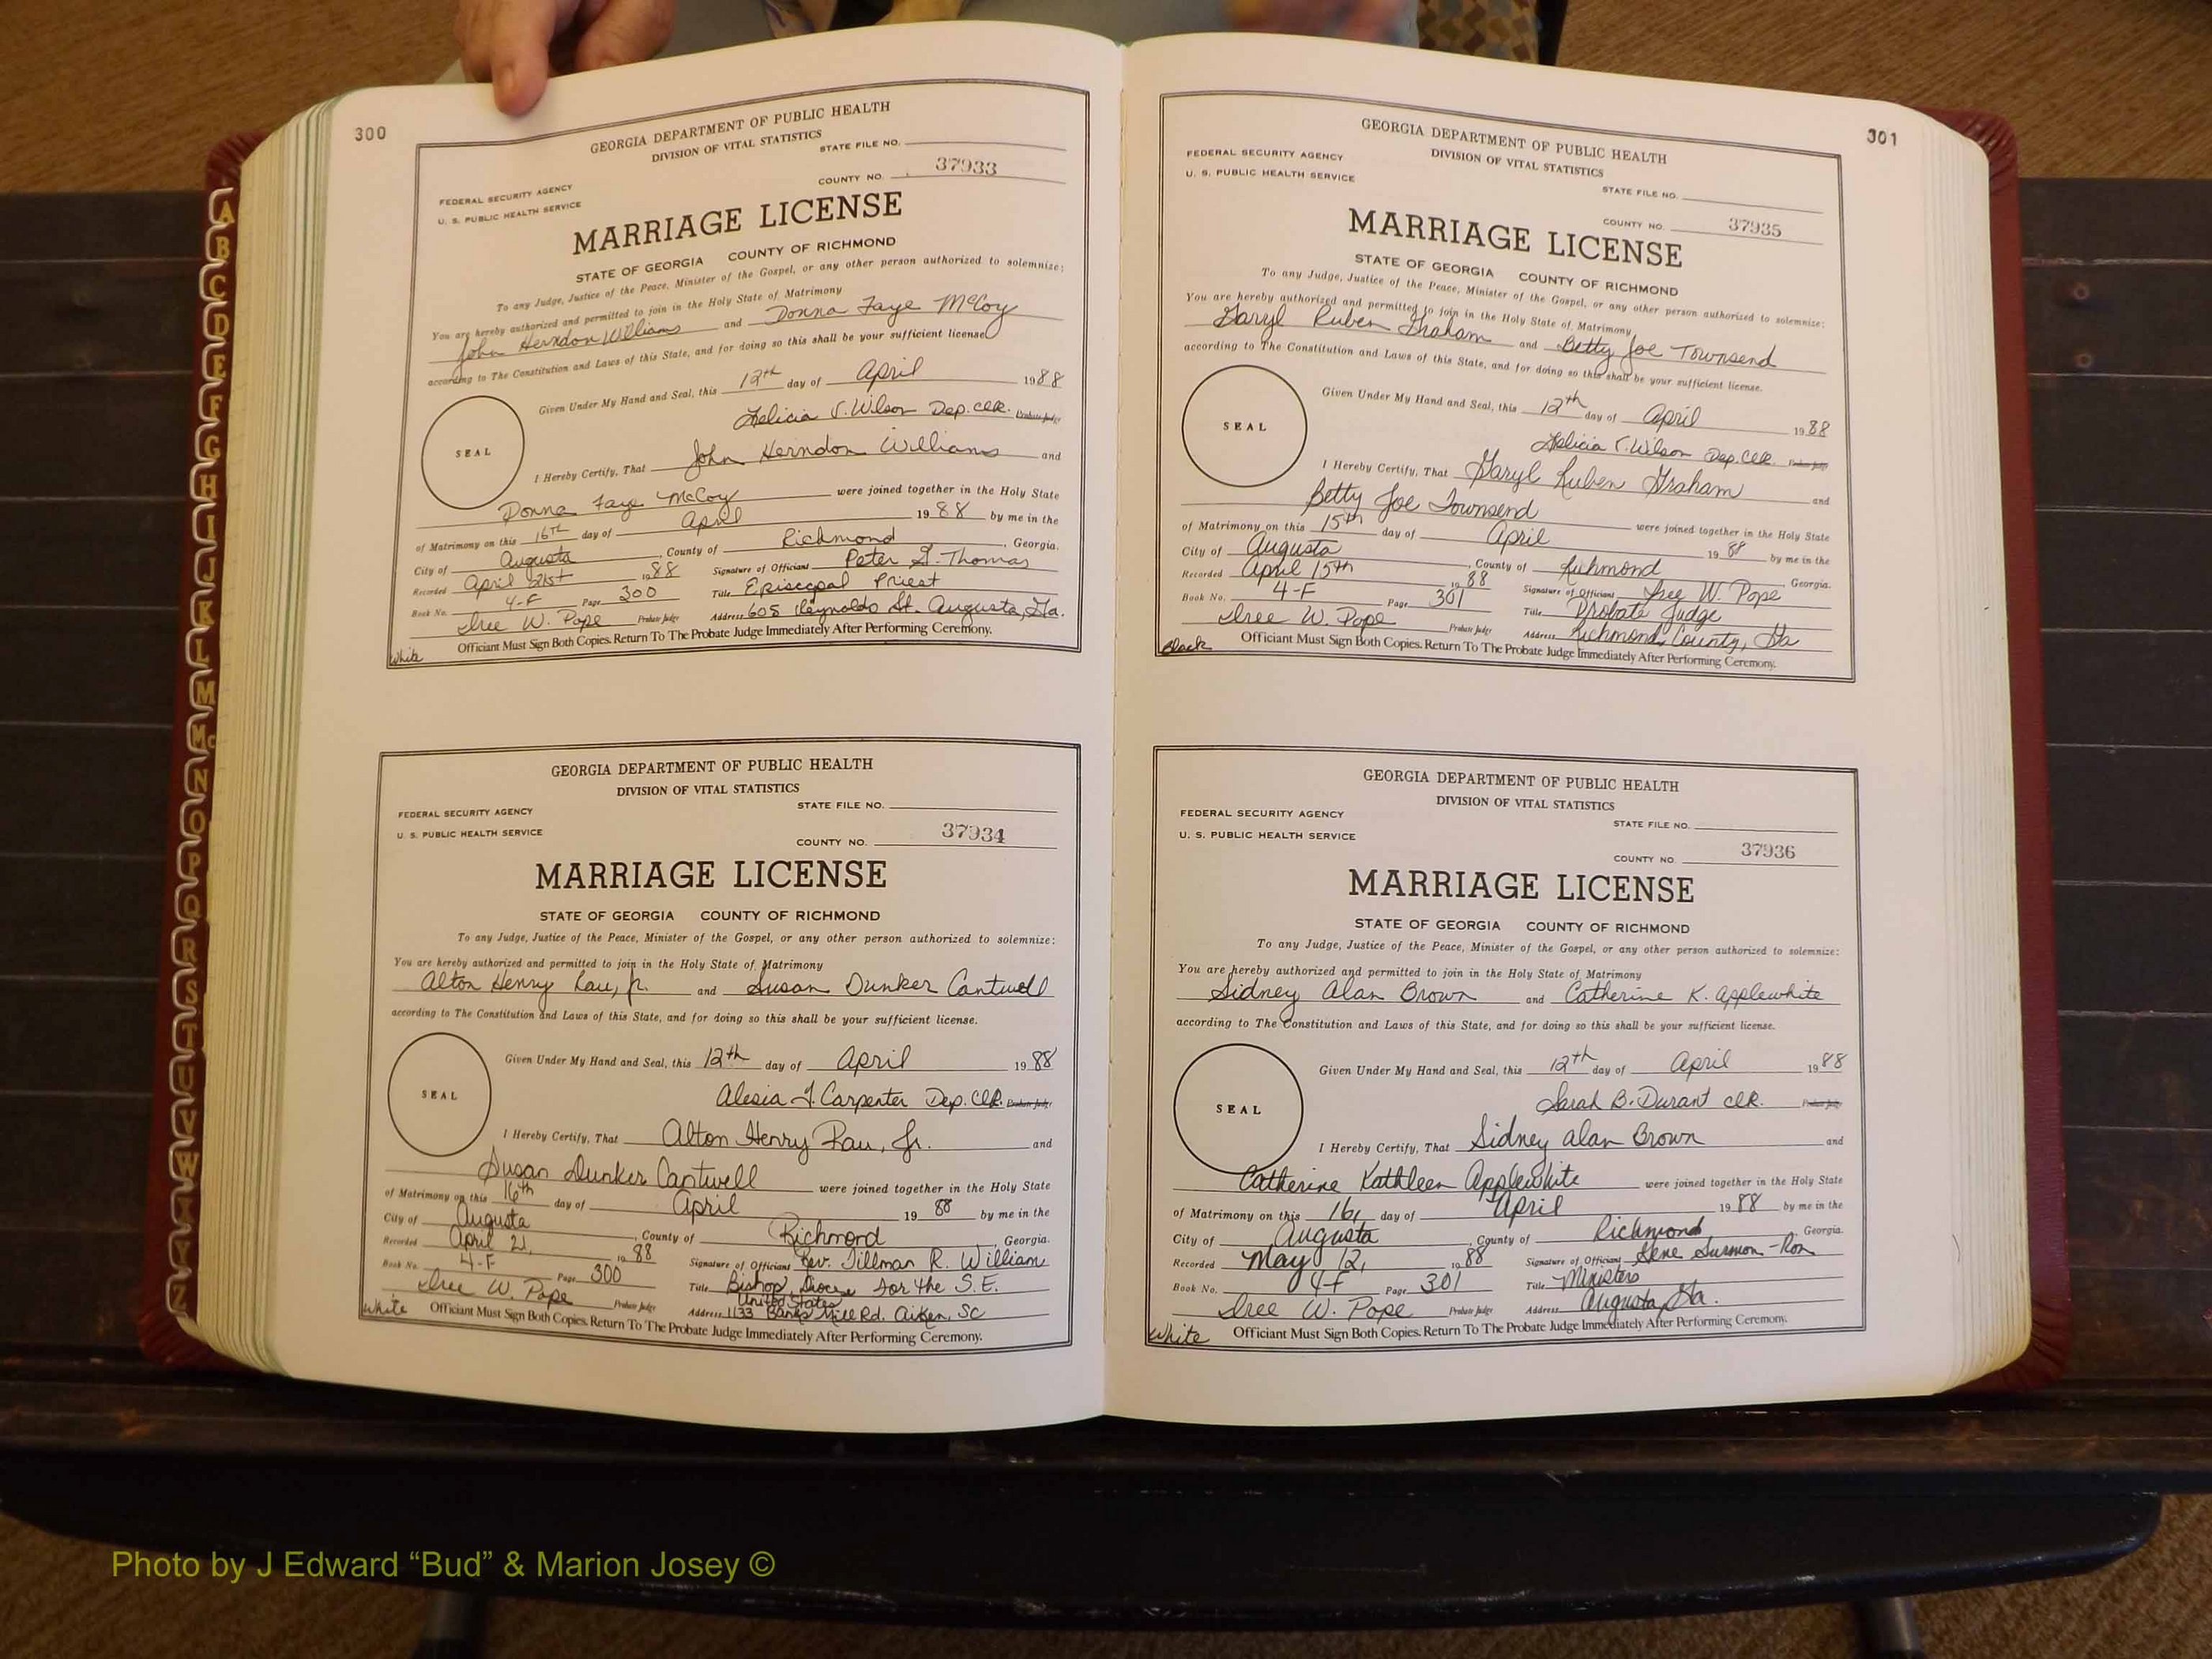 300
GEORGIA DEPARTMENT OF PUBLIC HEALTH
DIVISION OF VITAL STATISTICS
STATE FILE NO.
FEDERAL SECURITY AGENCY
U. S. PUBLIC HEALTH SERVICE
COUNTY NO. 37933
MARRIAGE LICENSE
STATE OF GEORGIA COUNTY OF RICHMOND
To any Judge, Justice of the Peace, Minister of the Gospel, or any other person authorized to solemnize:
You are hereby authorized and permitted to join in the Holy State of Matrimony
John Herndon Williams and Donna Faye McCoy
according to The Constitution and Laws of this State, and for doing so this shall be your sufficient license.
Given Under My Hand and Seal, this 12th day of April 1988
Felicia V. Wilson Dep. Clk. Probate Judge
SEAL
I Hereby Certify, That John Herndon Williams and
Donna Faye McCoy were joined together in the Holy State
of Matrimony on this 16th day of April 1988 by me in the
City of Augusta, County of Richmond, Georgia.
Recorded April 21st 1988 Signature of Officiant Peter G. Thomas
Book No. 4-F Page 300 Title Episcopal Priest
Iree W. Pope Probate Judge Address 605 Reynolds St. Augusta, Ga.
White Officiant Must Sign Both Copies. Return To The Probate Judge Immediately After Performing Ceremony.
GEORGIA DEPARTMENT OF PUBLIC HEALTH
DIVISION OF VITAL STATISTICS
FEDERAL SECURITY AGENCY STATE FILE NO.
U. S. PUBLIC HEALTH SERVICE
COUNTY NO. 37934
MARRIAGE LICENSE
STATE OF GEORGIA COUNTY OF RICHMOND
To any Judge, Justice of the Peace, Minister of the Gospel, or any other person authorized to solemnize:
You are hereby authorized and permitted to join in the Holy State of Matrimony
Alton Henry Rau, Jr. and Susan Dunker Cantwell
according to The Constitution and Laws of this State, and for doing so this shall be your sufficient license.
Given Under My Hand and Seal, this 12th day of April 1988
Alesia J. Carpenter Dep. Clk. Probate Judge
SEAL
I Hereby Certify, That Alton Henry Rau, Jr. and
Susan Dunker Cantwell were joined together in the Holy State
of Matrimony on this 16th day of April 1988 by me in the
City of Augusta, County of Richmond, Georgia.
Recorded April 21, 1988 Signature of Officiant Rev. Tillman R. William
Book No. 4-F Page 300 Title Bishop, Diocese for the S.E.
United States
Iree W. Pope Probate Judge Address 1133 Banks Mill Rd. Aiken, SC
White Officiant Must Sign Both Copies. Return To The Probate Judge Immediately After Performing Ceremony.
301
GEORGIA DEPARTMENT OF PUBLIC HEALTH
DIVISION OF VITAL STATISTICS
FEDERAL SECURITY AGENCY
U. S. PUBLIC HEALTH SERVICE
STATE FILE NO.
COUNTY NO. 37935
MARRIAGE LICENSE
STATE OF GEORGIA COUNTY OF RICHMOND
To any Judge, Justice of the Peace, Minister of the Gospel, or any other person authorized to solemnize:
You are hereby authorized and permitted to join in the Holy State of Matrimony
Daryl Ruben Graham and Betty Joe Townsend
according to The Constitution and Laws of this State, and for doing so this shall be your sufficient license.
Given Under My Hand and Seal, this 12th day of April 1988
Felicia V. Wilson Dep. Clk. Probate Judge
SEAL
I Hereby Certify, That Daryl Ruben Graham and
Betty Joe Townsend were joined together in the Holy State
of Matrimony on this 15th day of April 1988 by me in the
City of Augusta, County of Richmond Georgia.
Recorded April 15th 1988 Signature of Officiant Iree W. Pope
Book No. 4-F Page 301 Title Probate Judge
Iree W. Pope Probate Judge Address Richmond County, Ga
Black Officiant Must Sign Both Copies. Return To The Probate Judge Immediately After Performing Ceremony.
GEORGIA DEPARTMENT OF PUBLIC HEALTH
DIVISION OF VITAL STATISTICS
FEDERAL SECURITY AGENCY STATE FILE NO.
U. S. PUBLIC HEALTH SERVICE
COUNTY NO. 37936
MARRIAGE LICENSE
STATE OF GEORGIA COUNTY OF RICHMOND
To any Judge, Justice of the Peace, Minister of the Gospel, or any other person authorized to solemnize:
You are hereby authorized and permitted to join in the Holy State of Matrimony
Sidney Alan Brown and Catherine K. Applewhite
according to The Constitution and Laws of this State, and for doing so this shall be your sufficient license.
Given Under My Hand and Seal, this 12th day of April 1988
Sarah B. Durant Clk. Probate Judge
SEAL
I Hereby Certify, That Sidney Alan Brown and
Catherine Kathleen Applewhite were joined together in the Holy State
of Matrimony on this 16, day of April 1988 by me in the
City of Augusta, County of Richmond, Georgia.
Recorded May 12, 1988 Signature of Officiant Gene
Book No. 4-F Page 301 Title Ministers
Iree W. Pope Probate Judge Address Augusta, Ga.
White Officiant Must Sign Both Copies. Return To The Probate Judge Immediately After Performing Ceremony.
A
B
C
D
E
F
G
H
I
J
K
L
M
Mc
N
O
P
Q
R
S
T
U
V
W
X
Y
Z
Photo by J Edward “Bud” & Marion Josey ©